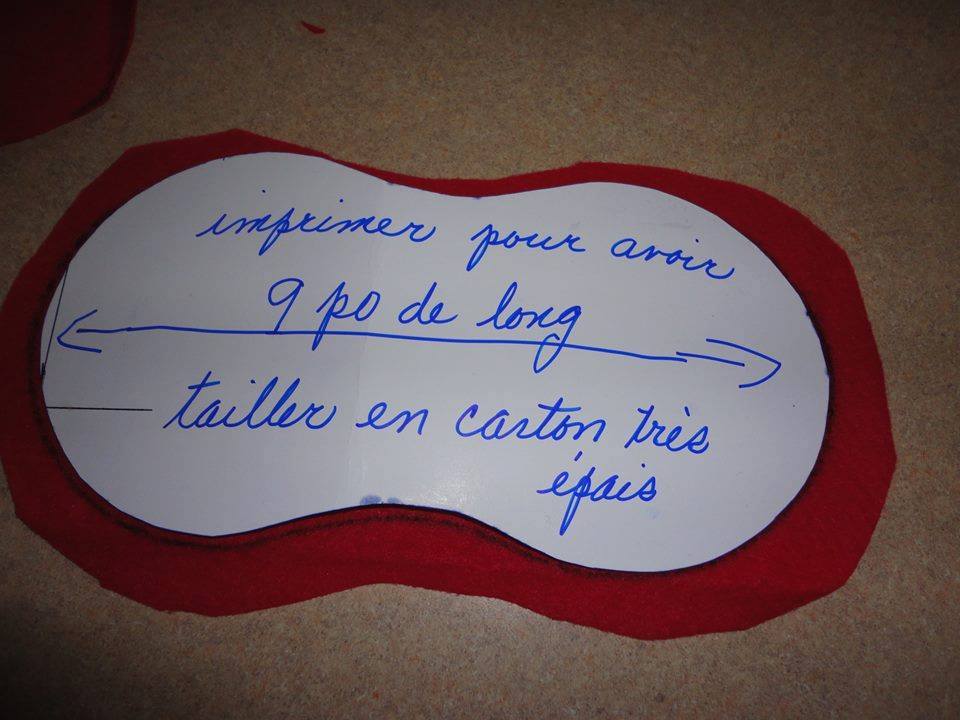 imprimer pour avoir
9 po de long
tailler en carton très
épais